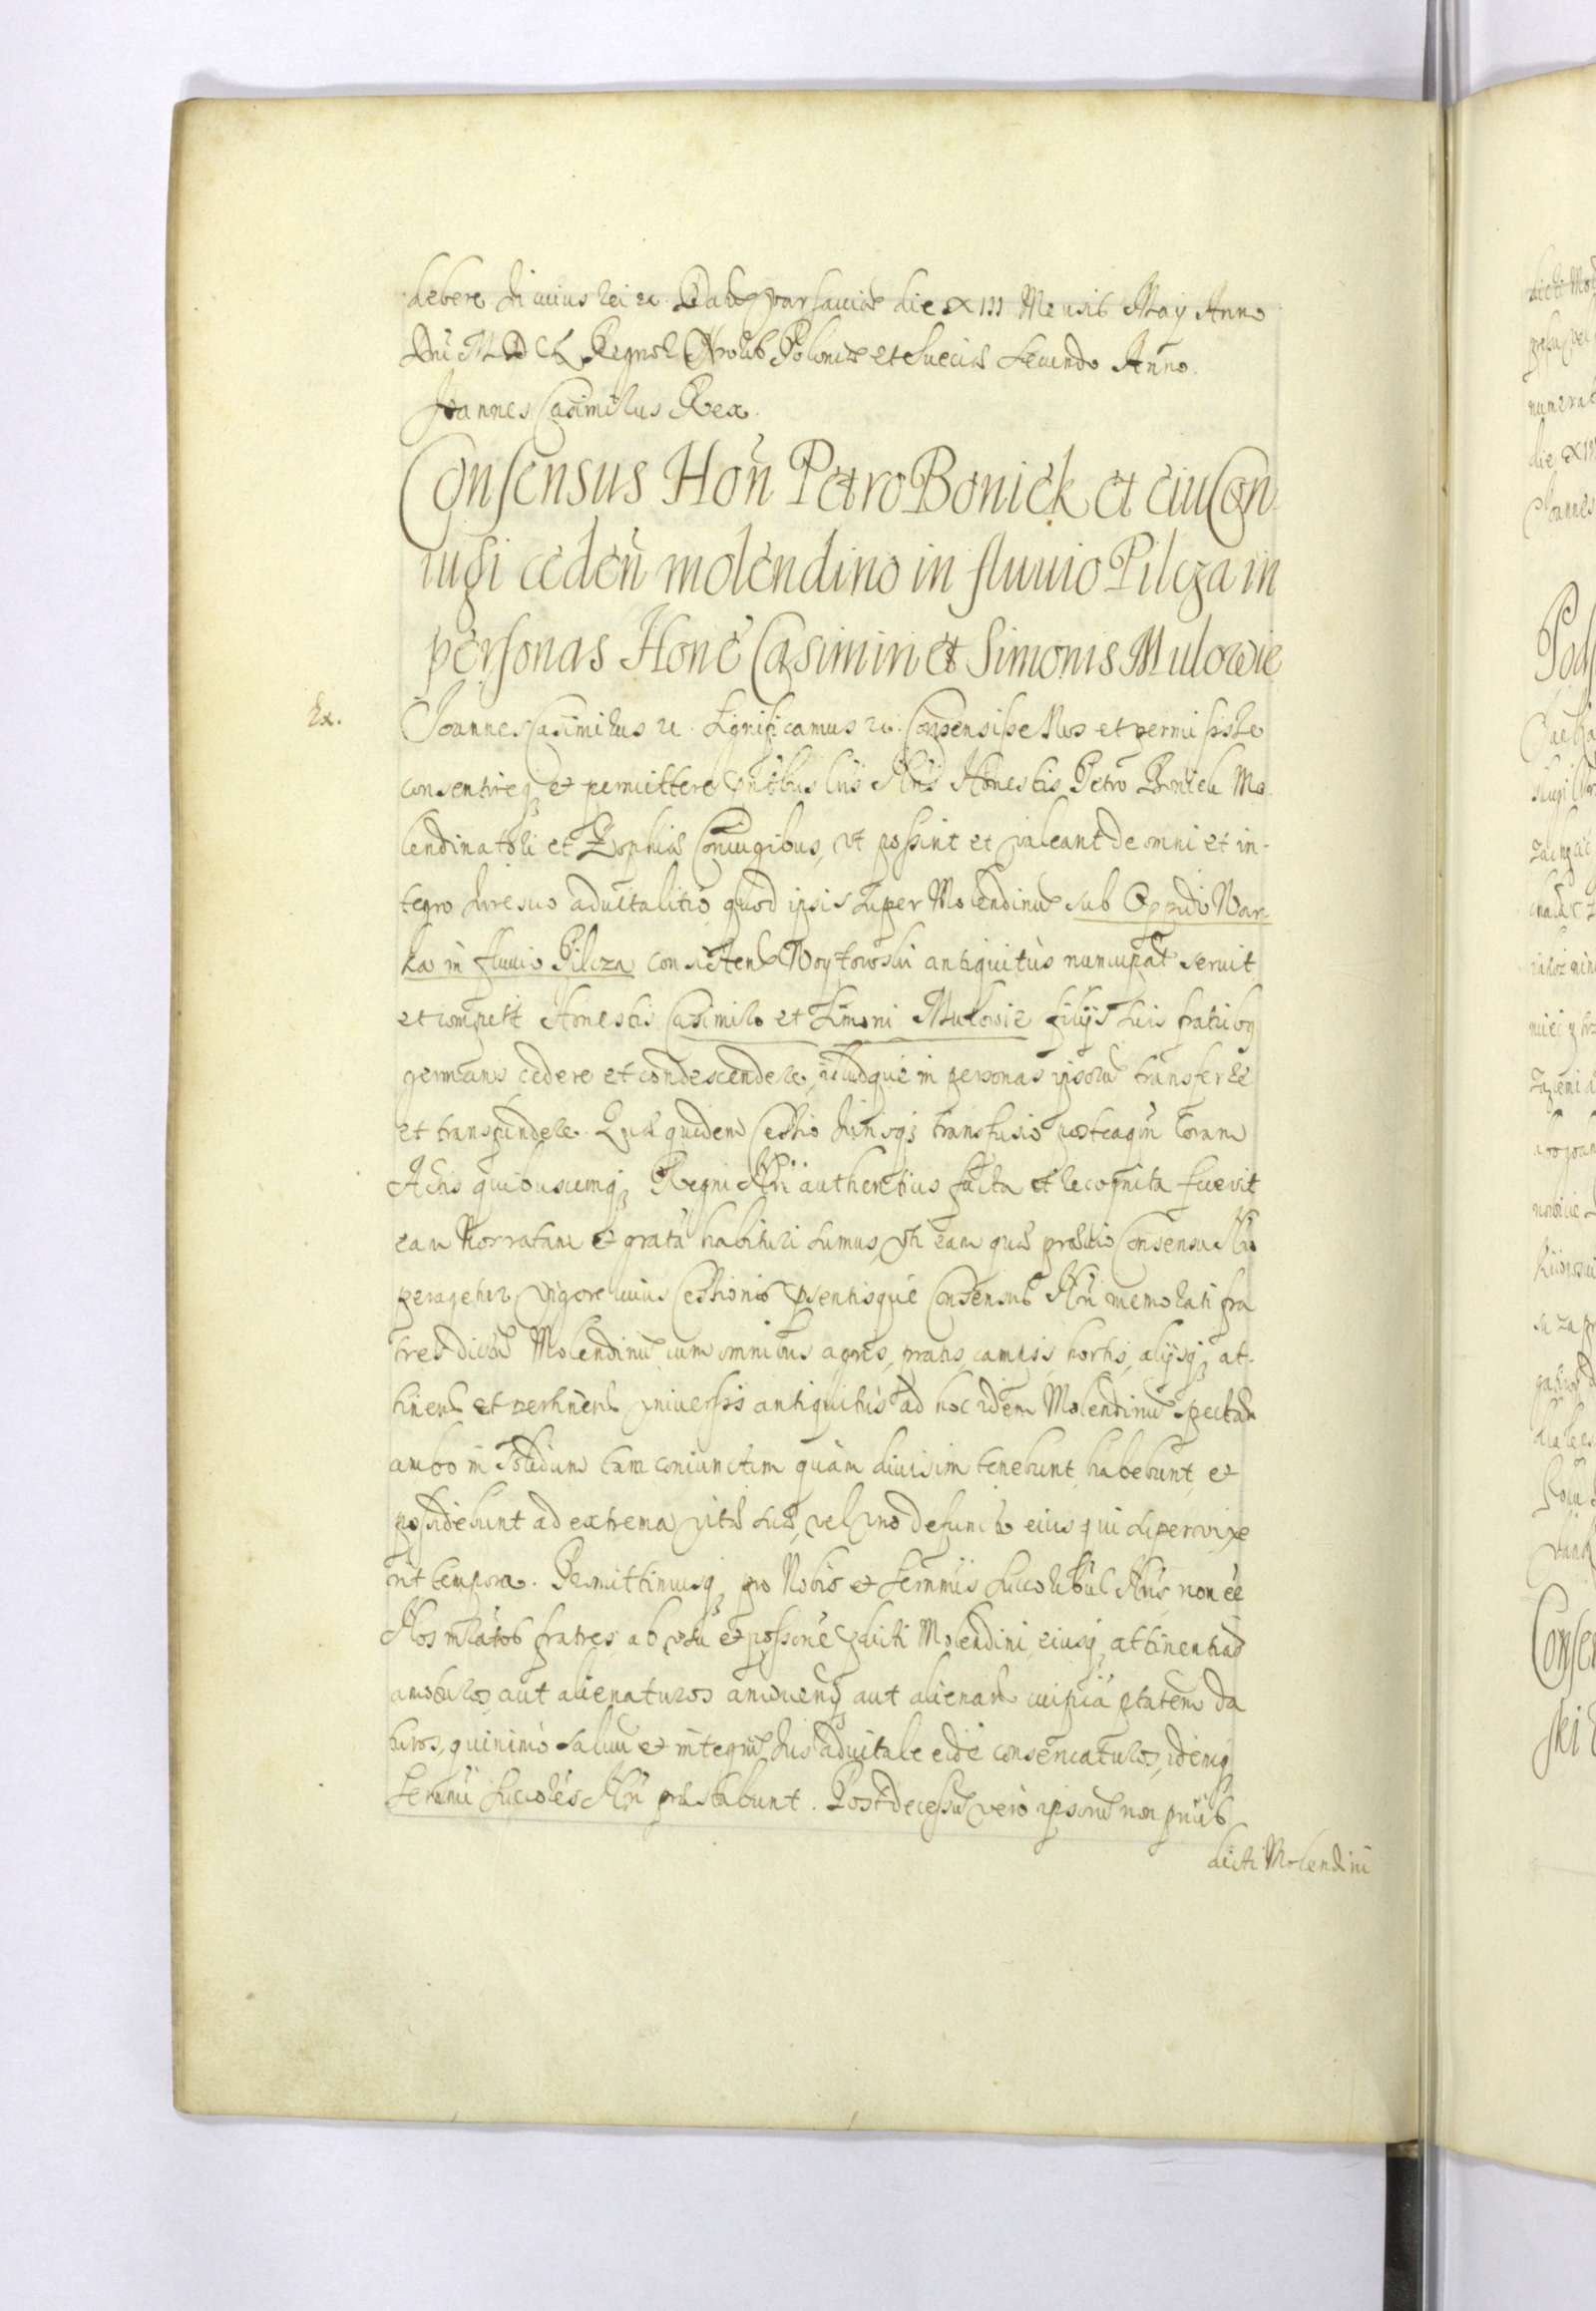 debere. In cuius rei ex. Datũ Varsauiæ die XIII Mensis May Anno
Dnĩ MDCL Regnor̃ Nrõrub Poloniæ et Sueciæ secundo Anno.
Joannes Casimirus Rex.
Consensus Hon̄ Petro Boniek et eiu Con
iugi ceden̄ molendino in fluuio Pilcza in
personas Hone Casimiri et Simonis Mulowie
Ex.
Joannes Casimirus ex. Significamus ex. Consensisse Nos et permisisse
consentireq; et permittere pñtibus lris Nrĩs Honestis Petro Boniek Mo
lendinatori et Zophiæ Coniugibus, vt possint et valeant de omni et in-
tegro Iure suo aduitalitio quod ipsis super Molendinũ sub Oppido War-
ka in fluuio Pilcza consisten̄ Woytowski antiquitùs nuncupat̃ seruit
et competit Honestis Casimiro et Simoni Mulowie filijs suis fratribq
germanis cedere et condescendere, illudque in personas ipsorũ transferre
et transfundere. Quæ quidem Cessio Iurisq; transfusio posteaqm̃ coram
Actis quibuscumq; Regni Nrĩ authenticis facta et recognita fuerit
eam Nos ratam et gratã habituri sumus, vti eam quæ prævio Consensu Nrõ
peragetur vigore cuius Cessionis pñsentisque Consensus Nrĩ memorati fra
tres dictũ Molendinũ cum omnibus agris, pratis, campis, hortis, alijsq; at-
tinen̄ et pertinen̄ vniuersis antiquitùs ad hoc idem Molendinũ spectan̄
ambo in solidum tam coniunctim quàm diuisim tenebunt, habebunt et
possidebunt ad extrema vitæ suæ, vel vno defuncto eius qui superuixe
rit tempora. Permittimusq; pro Nobis et Sermĩs Successoribus Nrĩs non eẽ
Nos mratos fratres ab vsu et possione prædicti Molendini eiusq; attinentijs
amoturos aut alienaturos amouendiq; aut alienan̄ cuipiã ptatem da
turos, quinimò saluũ et integrũ Ius aduitale eidẽ conseruaturos, idemq
Sermĩ Successores Nrĩ præstabunt. Post decessũ verò ipsorũ non priùs
dicti Molendini